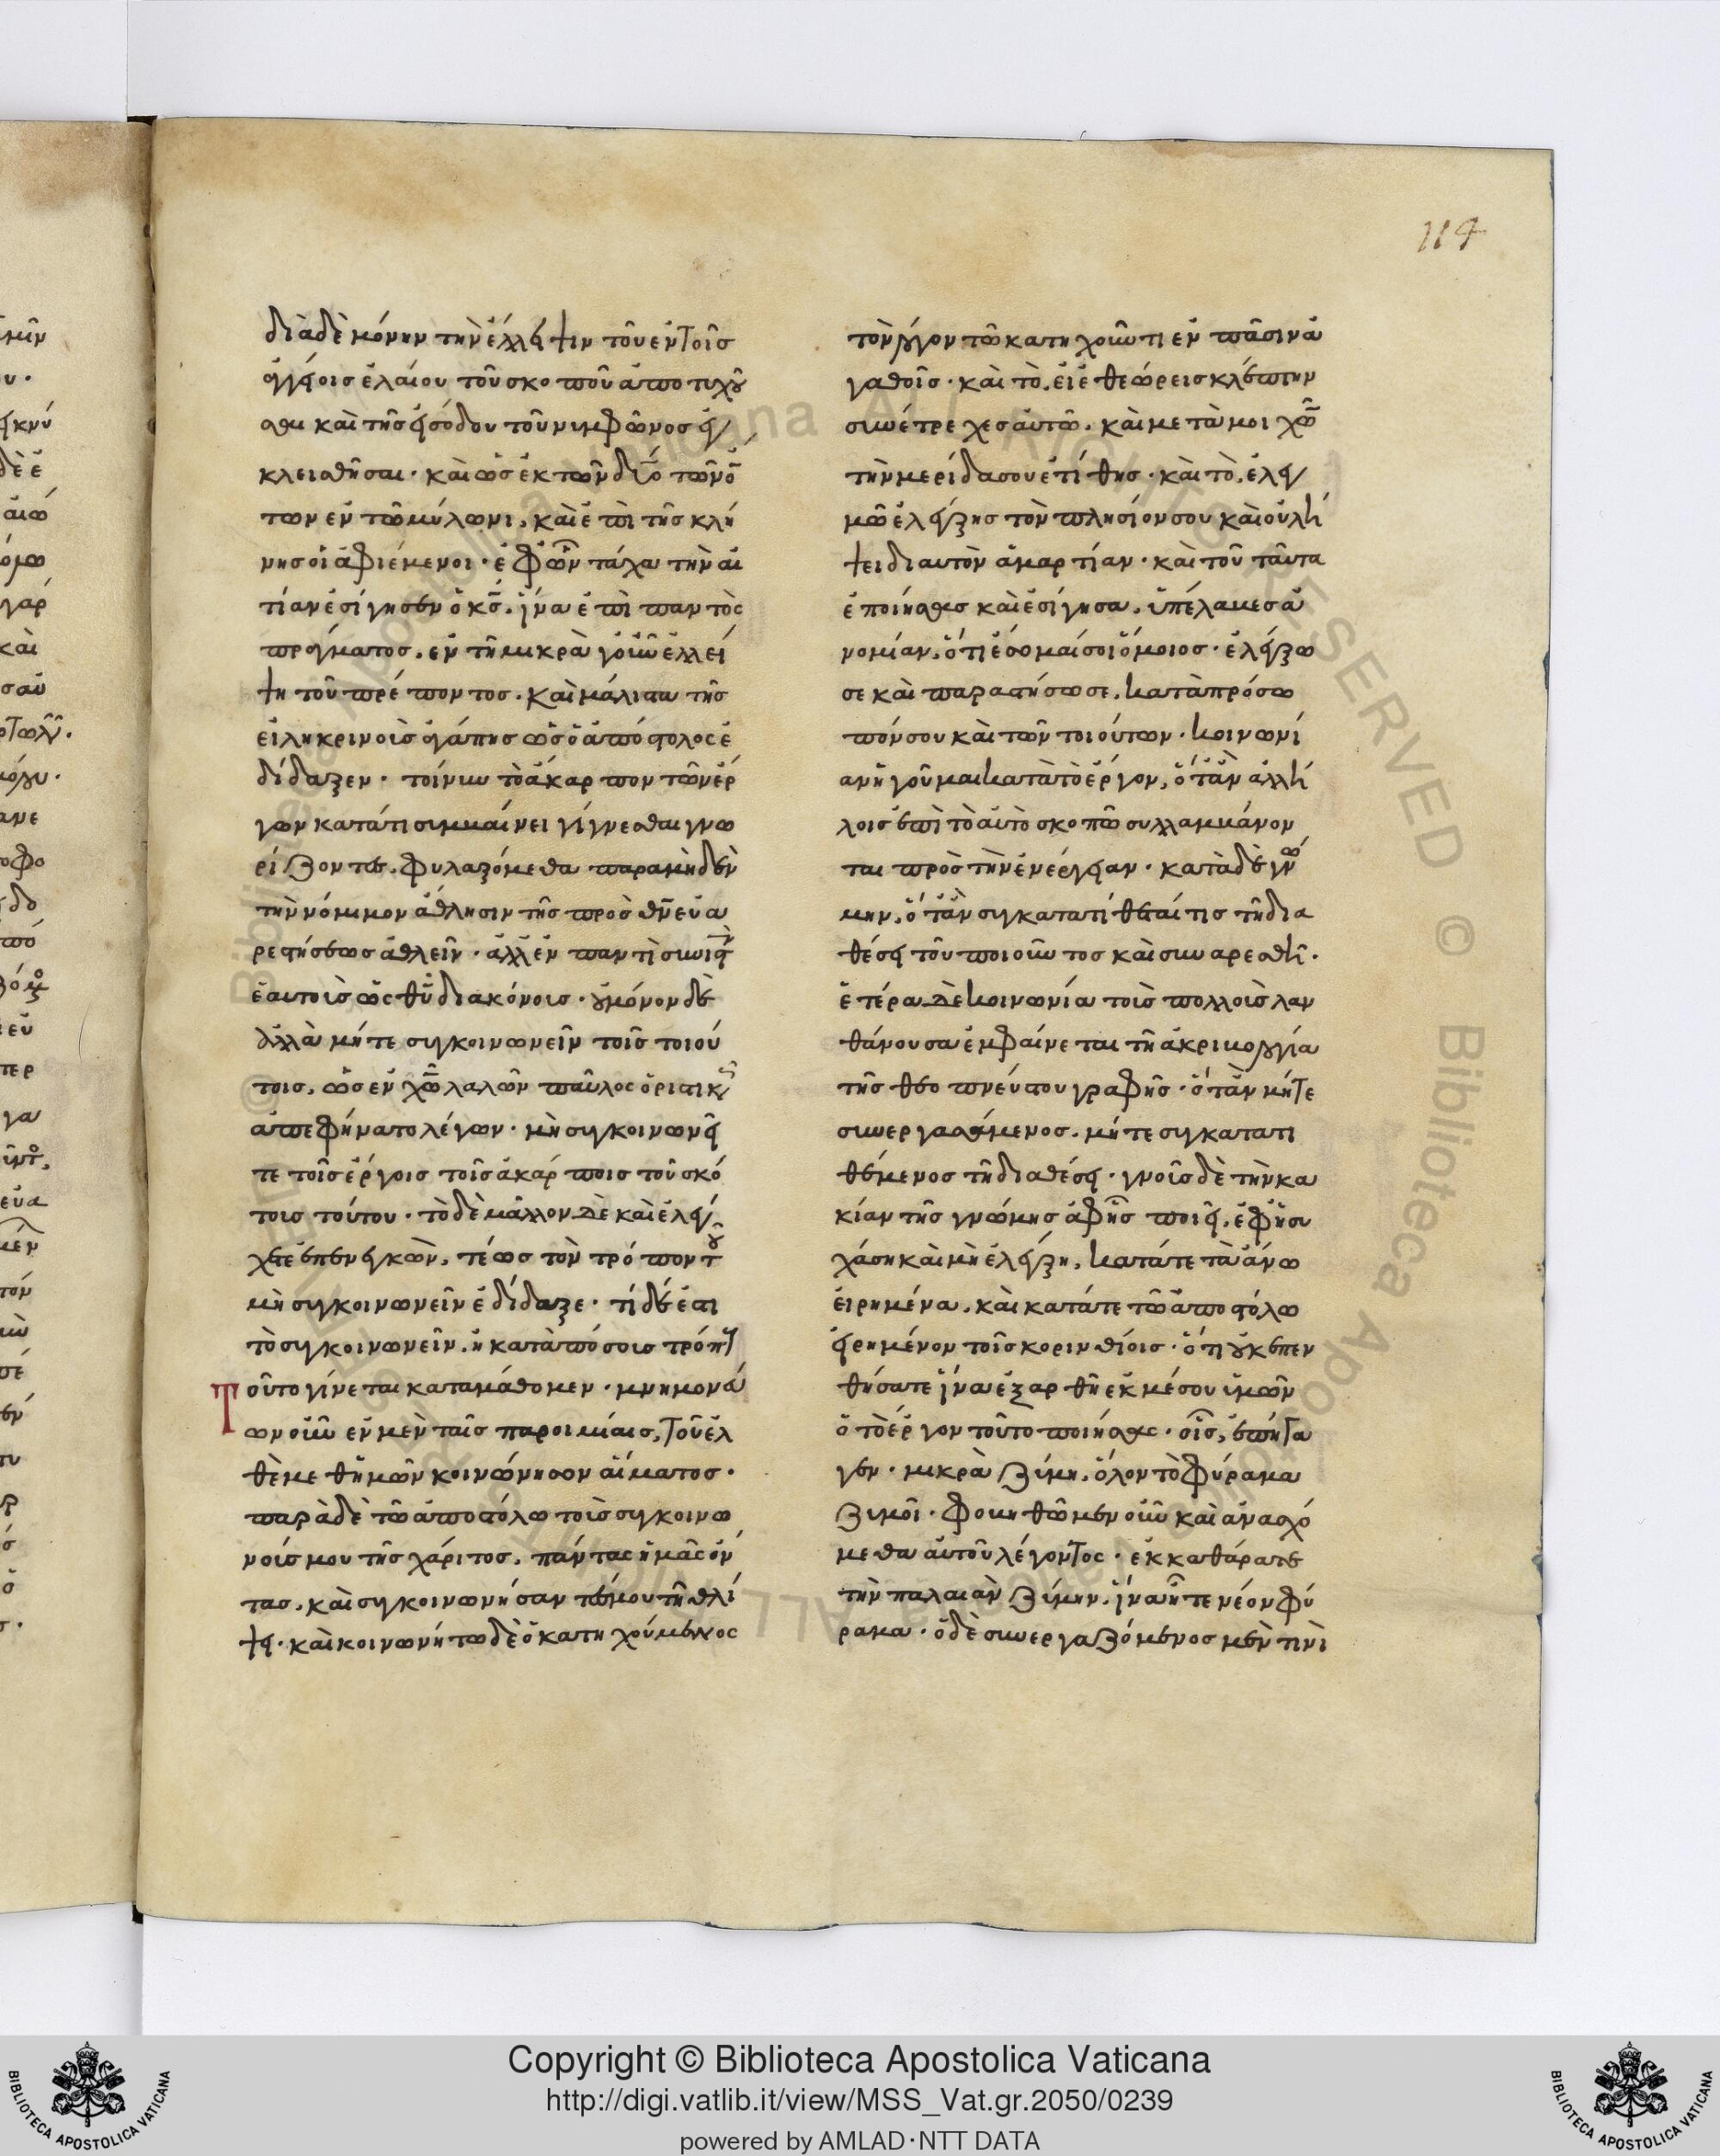 114
διὰ δὲ μόνην τὴν ἔλλειψιν τοῦ ἐν τοῖς
ἀγγείοις ἐλαίου τοῦ σκοποῦ ἀποτυχοῦ
σαι καὶ τῆς εἰσόδου τοῦ νιμφῶνος ἐκ
κλεισθῆσαι· καὶ ὡς ἐκ τῶν δύο τῶν ὄν
των ἐν τῶ μύλωνι, καὶ ἐπὶ τῆς κλή
νης οἱ ἀφιέμενοι· ἐφ' ὧν τάχα τὴν αἰ
τίαν ἐσίγησεν ὁ κς, ἵνα ἐπὶ παντὸς
πράγματος, ἐν τῆ μικρὰ γοῦν ἐλλεί
ψη τοῦ πρέποντος. καὶ μάλιστα τῆς
εἰληκρινοὶς ἀγάπης ὡς ὁ ἀπόστολος ἐ
δίδαξεν· τοίνυν τὸ ἄκαρπον τῶν ἔρ
γων κατάτι συμμαίνει γίγνεσθαι γνω
ρίζοντες, φυλαξόμεθα παραμηδὲν
τὴν νόμιμον ἄθλησιν τῆς πρὸς θν εὐα
ρεστήσεως ἀθλεῖν· ἀλλ' ἐν παντὶ συνιστᾶν
ἑαυτοὶς ὡς θῦ διακόνοις· οὐ μόνον δὲ
ἀλλὰ μήτε συγκοινωνεῖν τοῖς τοιού
τοις, ὡς ἐν χῶ λαλῶν παῦλος ὁριστικῶς
ἀπεφήνατο λέγων· μὴ συγκοινωνεῖ
τε τοῖς ἔργοις τοῖς ἀκάρποις τοῦ σκό
τοις τούτου· τὸ δὲ μᾶλλον δὲ καὶ ἐλέγ
χετε ἐπενεγκὼν, τέως τὸν τρόπον τοῦ
μὴ συγκοινωνεῖν ἐδίδαξε· τί δέ ἐστι
τὸ συγκοινωνεῖν, ἢ κατὰ πόσοις τρόπους
Τοῦτο γίνεται καταμάθομεν· μνημονεύ
ων οὖν ἐν μὲν ταῖς παροιμίαις, τοῦ ἐλ
θὲ μεθ' ἡμῶν κοινώνησον αἵματος·
παρὰ δὲ τῶ ἀποστόλω τοὶς συγκοινω
νοίς μου τῆς χάριτος, πάντας ἡμᾶς ὄν
τας, καὶ συγκοινωνήσαντές μου τῆ θλί
ψει· καὶ κοινωνήτω δὲ ὁ κατηχούμενος
τὸν λόγον τῶ κατηχοῦντι ἐν πᾶσιν ἀ
γαθοῖς· καὶ τὸ, εἰ ἐθεώρεις κλέπτην
συνέτρεχες αὐτῶ, καὶ μετὰ μοιχῶν
τὴν μερίδα σου ἐτίθης· καὶ τὸ, ἐλεγ
μῶ ἐλέγξης τὸν πλησίον σου καὶ οὐ λή
ψει δι αυτὸν ἁμαρτίαν· καὶ τοῦ ταῦτα
ἐποίησας καὶ ἐσίγησα, ὑπέλαμες ἀ
νομίαν, ὅτι ἔσομαί σοι ὅμοιος· ἐλέγξω
σε καὶ παραστήσω σε, κατὰ πρόσω
πόν σου καὶ τῶν τοιούτων· κοινωνί
αν ἡγοῦμαι κατὰ τὸ ἔργον, ὅτ' ἂν ἀλλή
λοις ἐπὶ τὸ αὐτὸ σκοπῶ συλλαμμάνον
ται πρὸς τὴν ἐνέργειαν· κατὰ δὲ γνώ
μην, ὅτ' ἂν συγκατατίθεταί τις τῆ δια
θέσει τοῦ ποιοῦντος καὶ συναρεσθῆ·
ἑτέρα δὲ κοινωνία τοὶς πολλοὶς λαν
θάνουσα ἐμφαίνεται τῆ ἀκριμολογία
τῆς θεοπνεύστου γραφῆς· ὅτ' ἂν μήτε
συνεργασάμενος, μήτε συγκατατι
θέμενος τῆ διαθέσει· γνοῖς δὲ τὴν κα
κίαν τῆς γνώμης ἀφ' ἧς ποιεῖ, ἐφησυ
χάση καὶ μὴ ἐλέγξη, κατάτε τὰ ἄνω
εἰρημένα, καὶ κατάτε τῶ ἀποστόλω
εἰρημένον τοῖς κορινθίοις· ὅτι οὐκ ἐπεν
θήσατε ἵνα ἐξαρθῆ ἐκ μέσου ὑμῶν
ὁ τὸ ἔργον τοῦτο ποιήσας· οἷς, ἐπήγα
γεν· μικρὰ ζύμη, ὅλον τὸ φύραμα
ζυμοῖ· φοιηθῶμεν οὖν καὶ ἀνασχό
μεθα αὐτοῦ λέγοντος· ἐκκαθάρατε
τὴν παλαιὰν ζύμην, ἵνα ἦτε νέον φύ
ραμα· ὁ δὲ συνεργαζόμενος μὲν τινὶ
Copyright © Biblioteca Apostolica Vaticana
http://digi.vatlib.it/view/MSS_Vat.gr.2050/0239
powered by AMLAD·NTT DATA